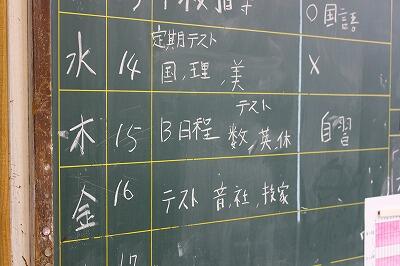 ○国語
水 14 定期テスト
国,理,美 ×
テスト
木 15 B日程 数,英,休 自習
金 16 テスト 音,社,技家
17